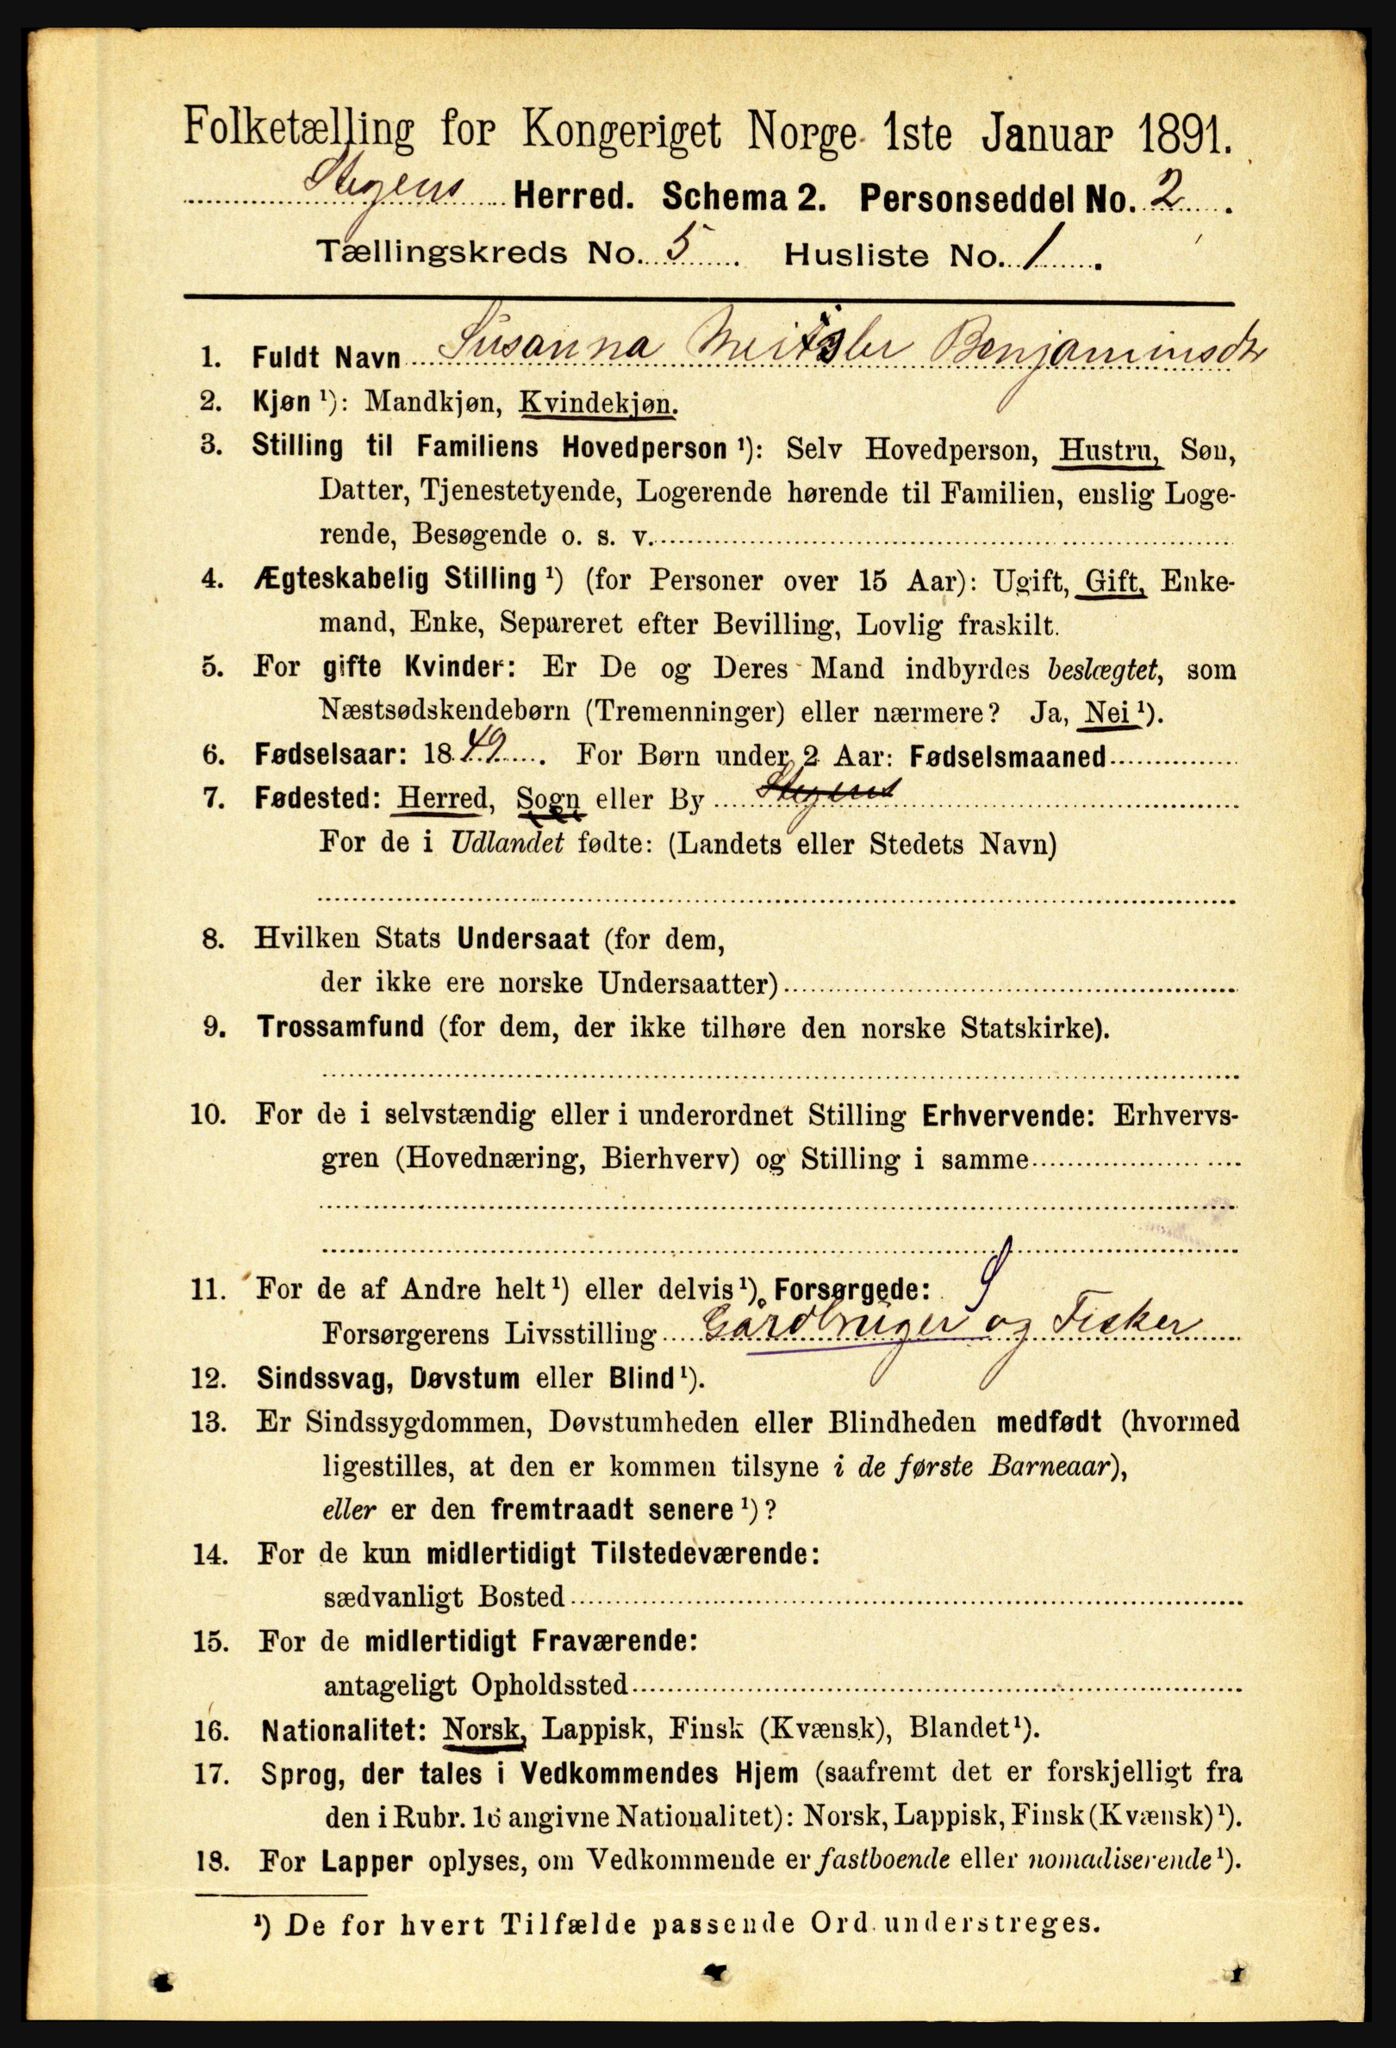 Folketælling for Kongeriget Norge 1ste Januar 1891.
Stegens Herred. Schema 2. Personseddel No. 2.
Tællingskreds No. 5. Husliste No. 1.
1. Fuldt Navn Susanna Benjaminsdtr
2. Kjøn ¹): Mandkjøn, Kvindekjøn.
3. Stilling til Familiens Hovedperson ¹): Selv Hovedperson, Hustru, Søn,
Datter, Tjenestetyende, Logerende hørende til Familien, enslig Loge-
rende, Besøgende o. s. v.
4. Ægteskabelig Stilling ¹) (for Personer over 15 Aar): Ugift, Gift, Enke-
mand, Enke, Separeret efter Bevilling, Lovlig fraskilt.
5. For gifte Kvinder: Er De og Deres Mand indbyrdes beslægtet, som
Næstsødskendebørn (Tremenninger) eller nærmere? Ja, Nei ¹).
6. Fødselsaar: 1849. For Børn under 2 Aar: Fødselsmaaned
7. Fødested: Herred, Sogn eller By Stegens
For de i Udlandet fødte: (Landets eller Stedets Navn)
8. Hvilken Stats Undersaat (for dem,
der ikke ere norske Undersaatter)
9. Trossamfund (for dem, der ikke tilhøre den norske Statskirke).
10. For de i selvstændig eller i underordnet Stilling Erhvervende: Erhvervs-
gren (Hovednæring, Bierhverv) og Stilling i samme
11. For de af Andre helt ¹) eller delvis ¹) Forsørgede: S
Forsørgerens Livsstilling Gårdbruger og Fisker
12. Sindssvag, Døvstum eller Blind ¹).
13. Er Sindssygdommen, Døvstumheden eller Blindheden medfødt (hvormed
ligestilles, at den er kommen tilsyne i de første Barneaar),
eller er den fremtraadt senere ¹)?
14. For de kun midlertidigt Tilstedeværende:
sædvanligt Bosted
15. For de midlertidigt Fraværende:
antageligt Opholdssted
16. Nationalitet: Norsk, Lappisk, Finsk (Kvænsk), Blandet ¹).
17. Sprog, der tales i Vedkommendes Hjem (saafremt det er forskjelligt fra
den i Rubr. 16 angivne Nationalitet): Norsk, Lappisk, Finsk (Kvænsk) ¹).
18. For Lapper oplyses, om Vedkommende er fastboende eller nomadiserende ¹).
¹) De for hvert Tilfælde passende Ord understreges.